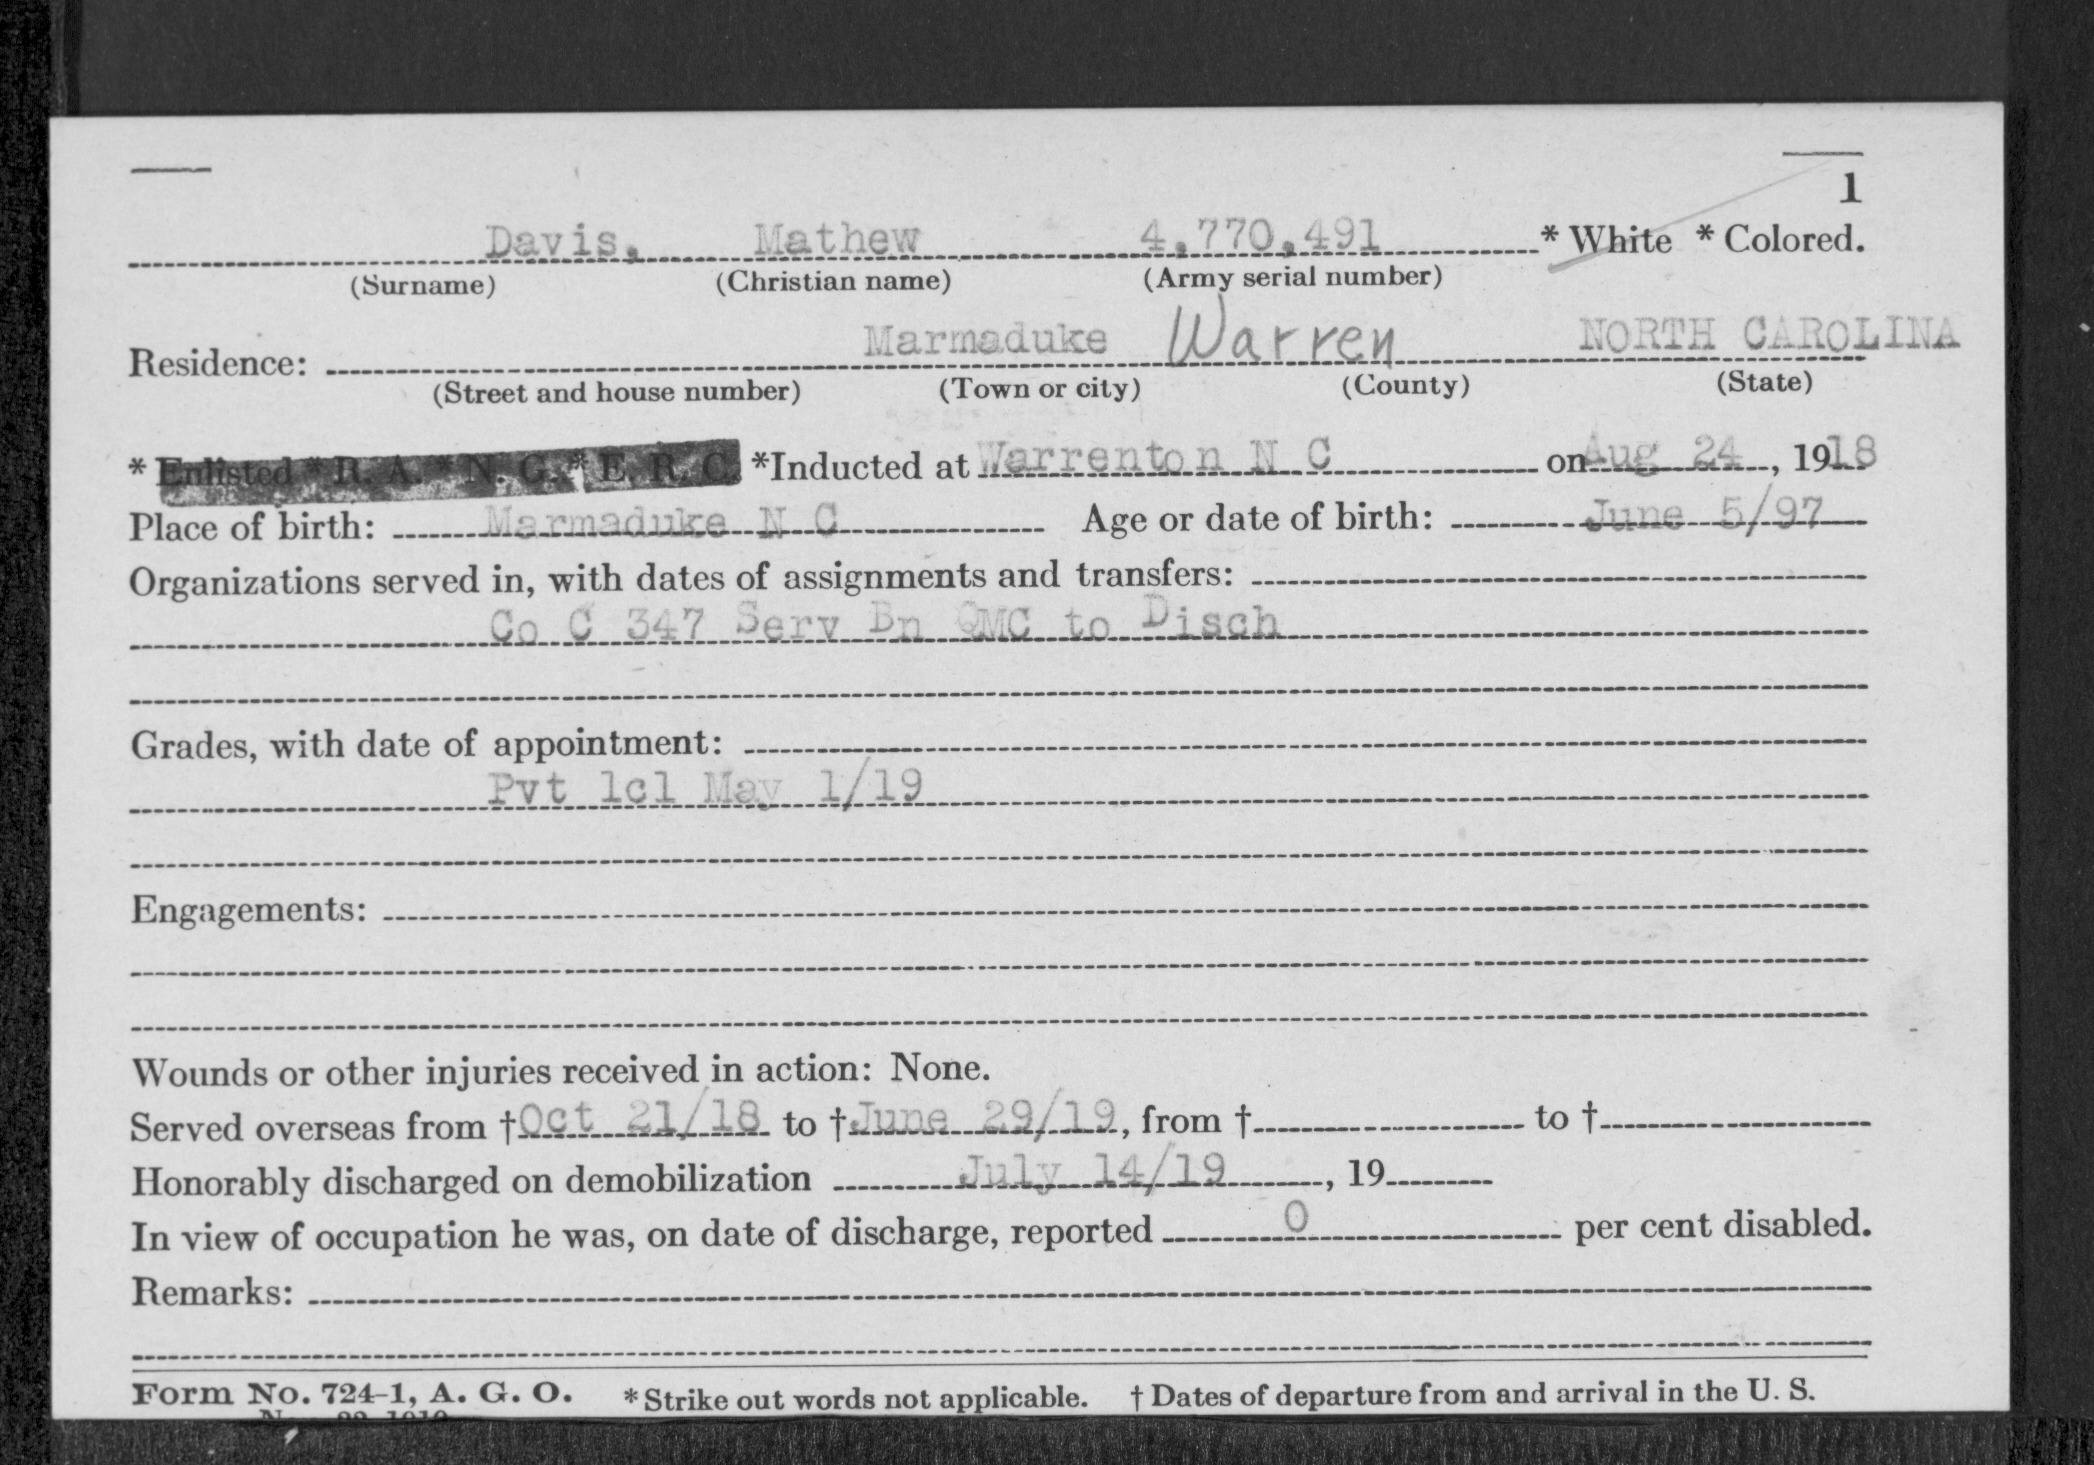 1
Davis, Mathew 4,770,491 * White * Colored.
(Surname) (Christian name) (Army serial number)
Residence: Marmaduke Warren NORTH CAROLINA
(Street and house number) (Town or city) (County) (State)
* Enlisted * R. A. * N. G. * E. R. C. *Inducted at Warrenton N C on Aug 24, 1918
Place of birth: Marmaduke N C Age or date of birth: June 5/97
Organizations served in, with dates of assignments and transfers:
Co C 347 Serv Bn QMC to Disch
Grades, with date of appointment:
Pvt 1cl May 1/19
Engagements:
Wounds or other injuries received in action: None.
Served overseas from †Oct 21/18 to †June 29/19, from † to †
Honorably discharged on demobilization July 14/19, 19
In view of occupation he was, on date of discharge, reported 0 per cent disabled.
Remarks:
Form No. 724-1, A. G. O. * Strike out words not applicable. † Dates of departure from and arrival in the U. S.